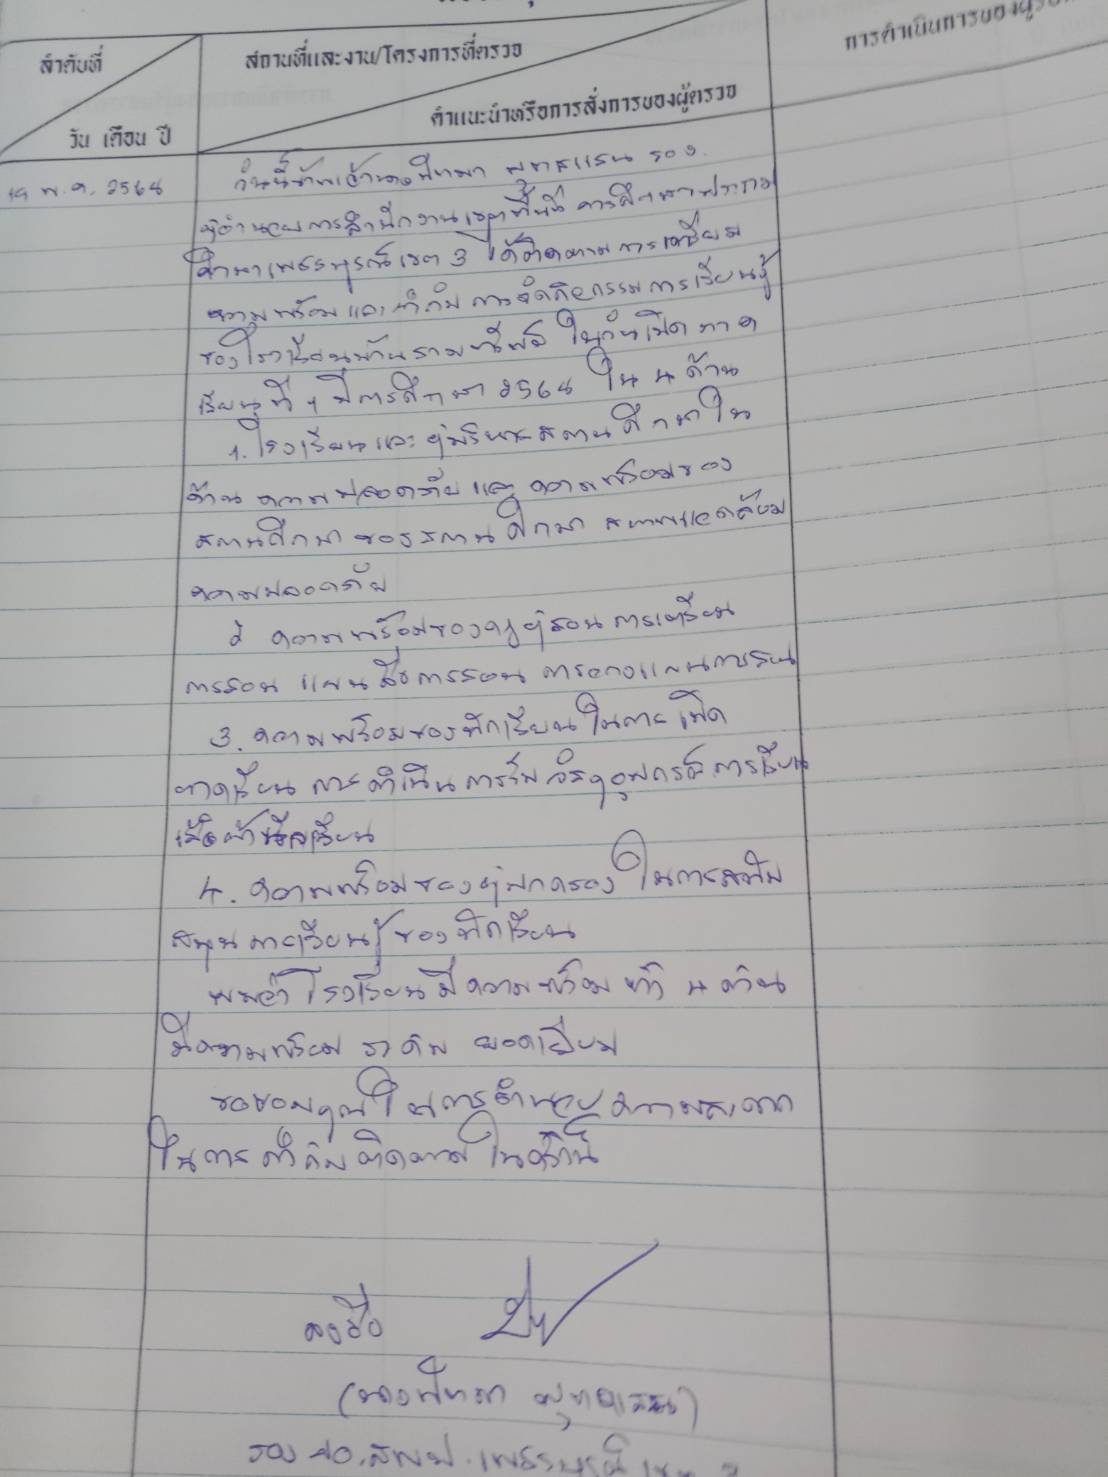 ลำดับที่
สถานที่และงาน/โครงการที่ตรวจ
การดำเนินการของผู้
วัน เดือน ปี
คำแนะนำหรือการสั่งการของผู้ตรวจ
พ.ค. 2564
วันนี้ข้าพเจ้านาง รอง
ผู้อำนวยการสำนักงานเขตพื้นที่การศึกษาประถม
ศึกษาเพชรบูรณ์เขต 3 ได้ติดตามการเตรียม
ความพร้อมและกำกับการจัดกิจกรรมการเรียนรู้
ของโรงเรียนบ้าน ในวันเปิดภาค
เรียนที่ 1 ปีการศึกษา 2564 ใน 4 ด้าน
1. โรงเรียนและผู้บริหารสถานศึกษาใน
ด้านความปลอดภัยและความพร้อมของ
สถานศึกษา ของสถานศึกษา สภาพแวดล้อม
ความปลอดภัย
2 ความพร้อมของครูผู้สอน การเตรียม
การสอน แผน การสอน การวางแผนการสอน
3. ความพร้อมของนักเรียนในการเปิด
ภาคเรียน การดำเนินการ วัสดุอุปกรณ์การเรียน
4. ความพร้อมของผู้ปกครองในการสนับ
สนุนการเรียนรู้ของนักเรียน
พบว่าโรงเรียนมีความพร้อมทั้ง 4 ด้าน
มีความพร้อม ระดับ ยอดเยี่ยม
ขอขอบคุณในการอำนวยความสะดวก
ในการกำกับติดตามในครั้งนี้
ลงชื่อ
รอง ผอ.สพป.เพชรบูรณ์ เขต 3